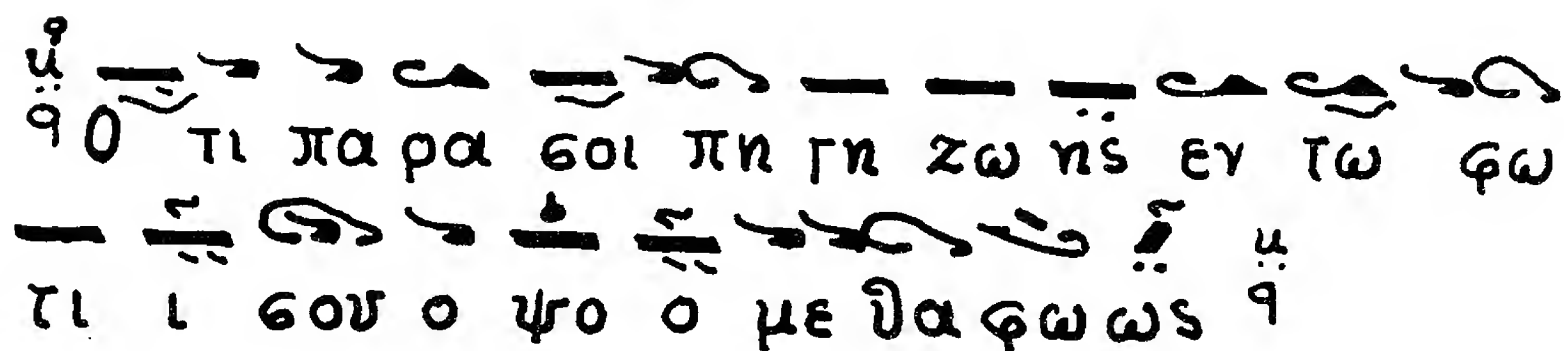 Ο τι πα ρα σοι πη γη ζω ης εν τω φω
τι ι σου ο ψο ο με θα φω ως